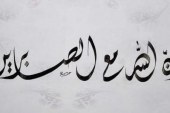 الله مع الصابرين